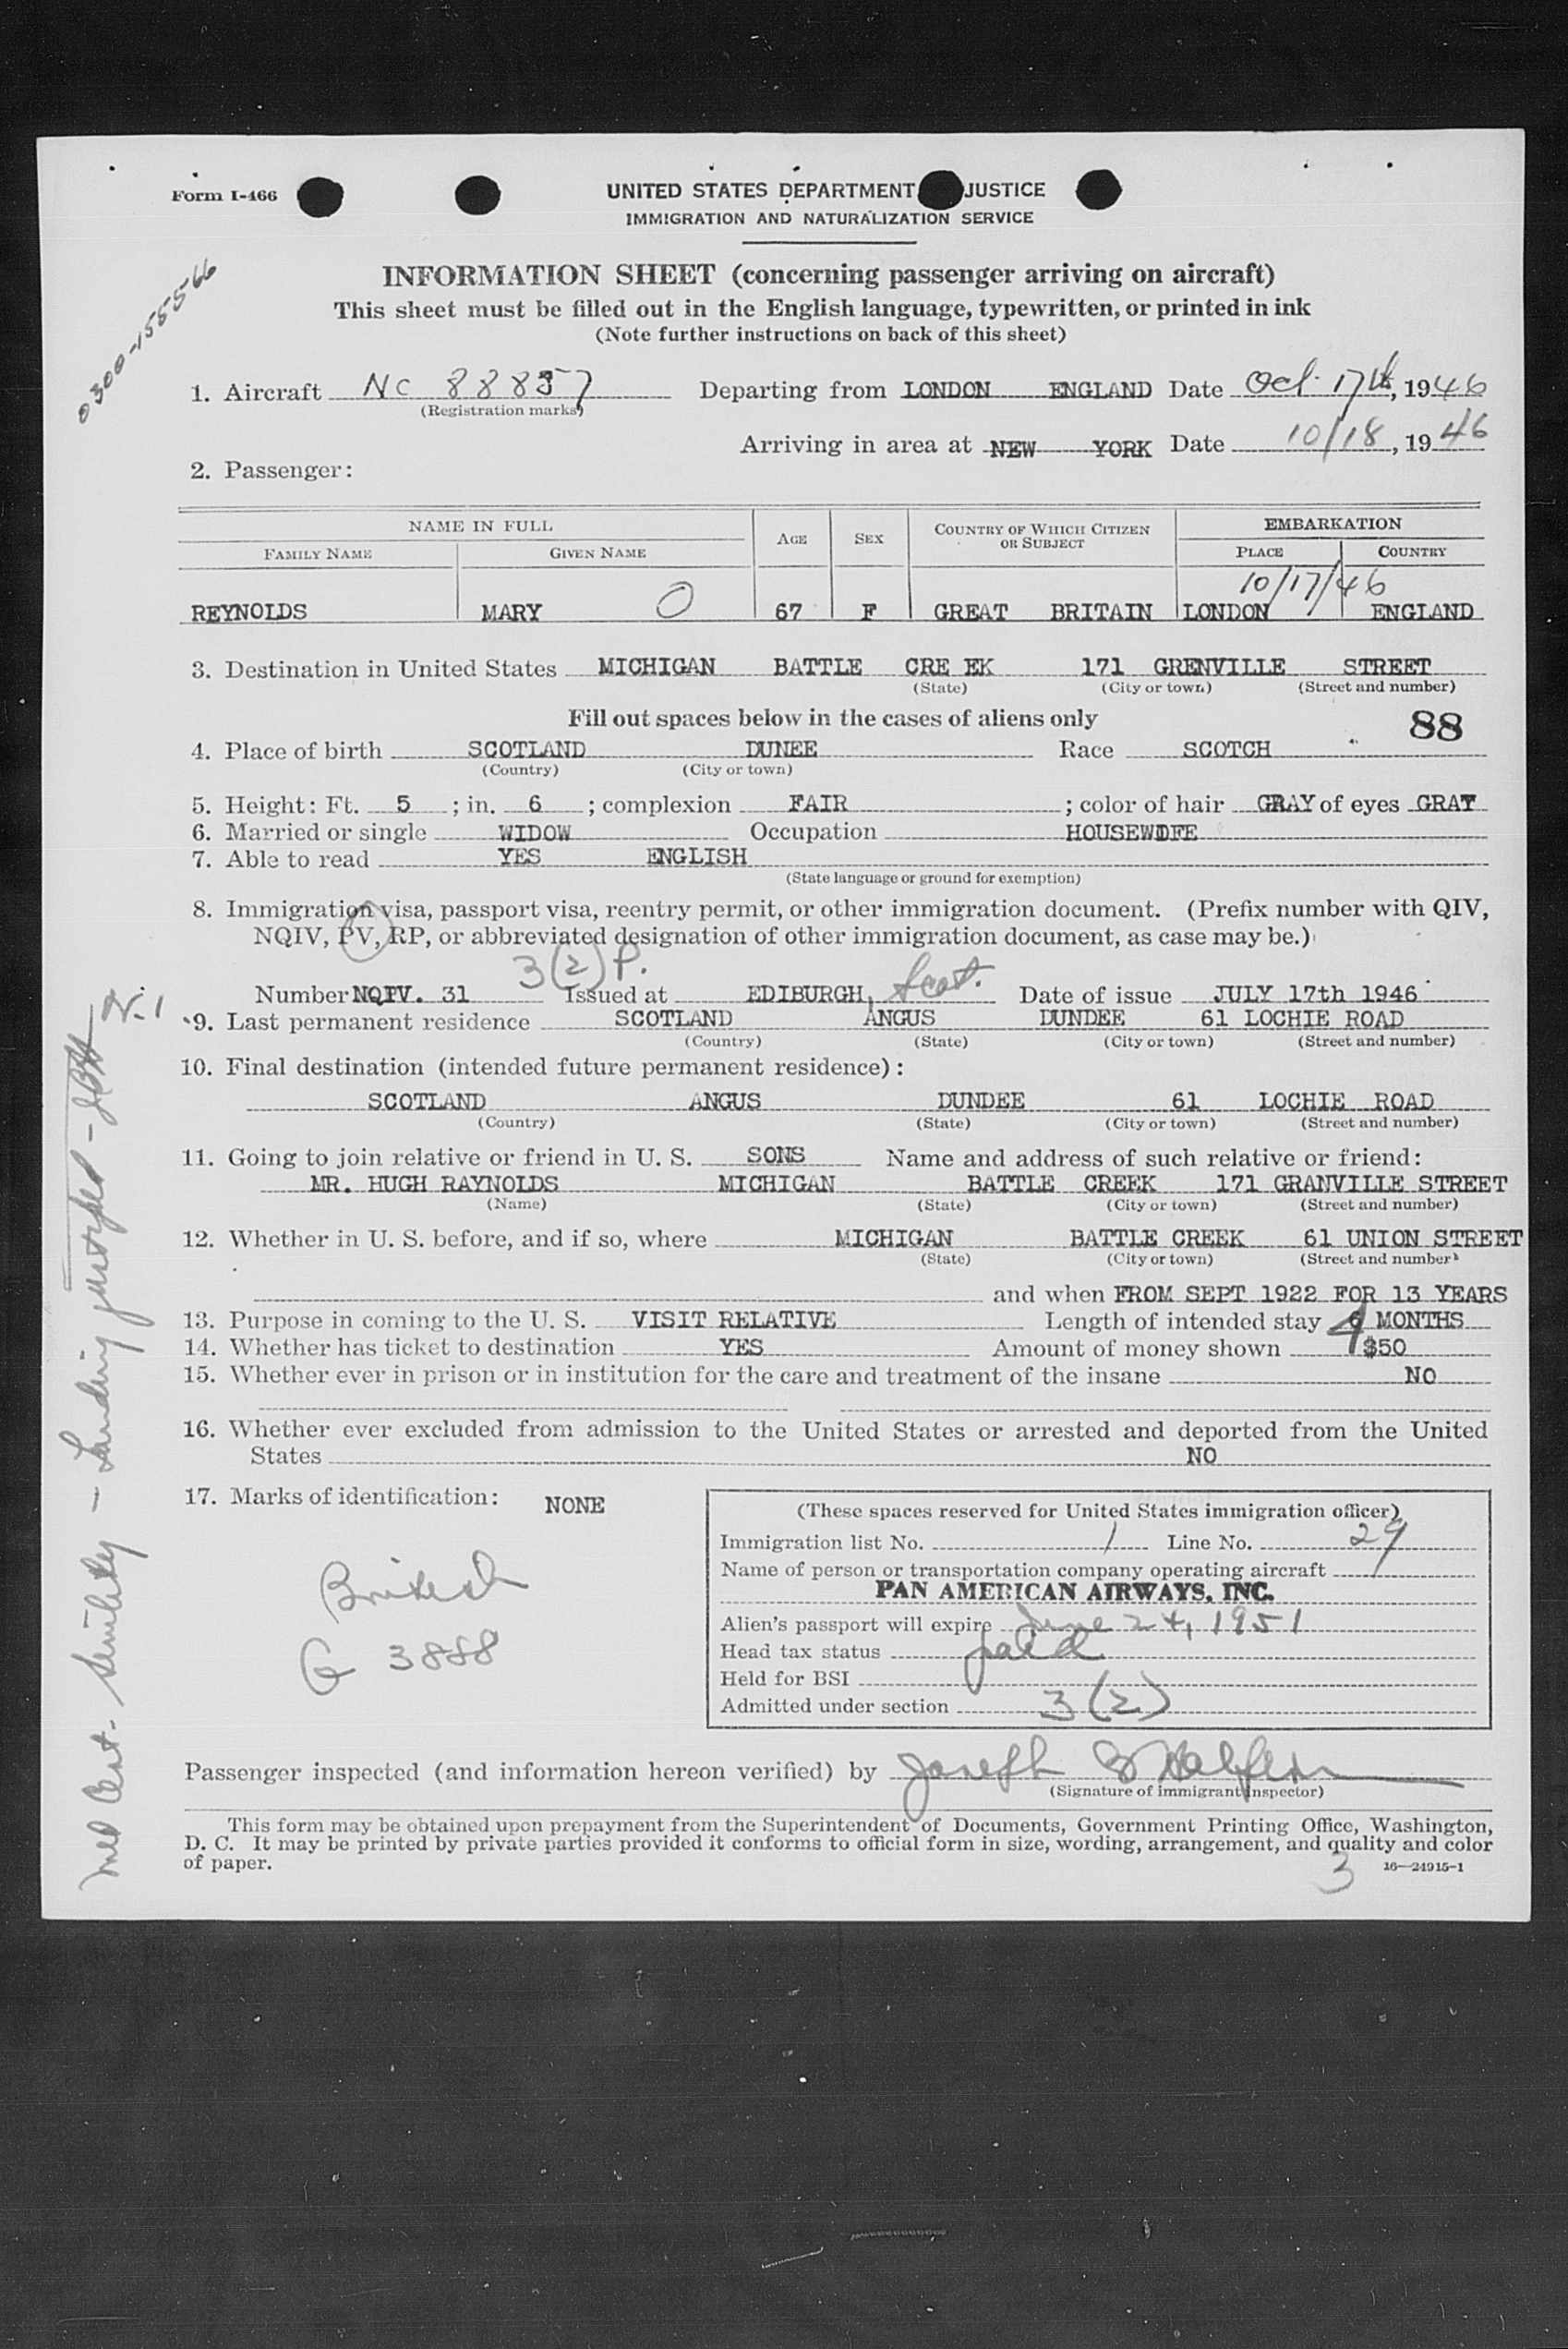 Form I-466
UNITED STATES DEPARTMENT JUSTICE
IMMIGRATION AND NATURALIZATION SERVICE
0300-155566
INFORMATION SHEET (concerning passenger arriving on aircraft)
This sheet must be filled out in the English language, typewritten, or printed in ink
(Note further instructions on back of this sheet)
1. Aircraft NC 88857 Departing from LONDON ENGLAND Date Oct. 17th, 1946
(Registration marks)
Arriving in area at NEW YORK Date 10/18, 1946
2. Passenger:
NAME IN FULL AGE SEX COUNTRY OF WHICH CITIZEN OR SUBJECT EMBARKATION
FAMILY NAME GIVEN NAME PLACE COUNTRY
10/17/46
REYNOLDS MARY O 67 F GREAT BRITAIN LONDON ENGLAND
3. Destination in United States MICHIGAN BATTLE CRE EK 171 GRENVILLE STREET
(State) (City or town) (Street and number)
Fill out spaces below in the cases of aliens only 88
4. Place of birth SCOTLAND DUNEE Race SCOTCH
(Country) (City or town)
5. Height: Ft. 5 ; in. 6 ; complexion FAIR ; color of hair GRAY of eyes GRAY
6. Married or single WIDOW Occupation HOUSEWIFE
7. Able to read YES ENGLISH
(State language or ground for exemption)
8. Immigration visa, passport visa, reentry permit, or other immigration document. (Prefix number with QIV,
NQIV, PV, RP, or abbreviated designation of other immigration document, as case may be.)
3(2) P.
Number NQIV. 31 Issued at EDIBURGH, Scot. Date of issue JULY 17th 1946
9. Last permanent residence SCOTLAND ANGUS DUNDEE 61 LOCHIE ROAD
(Country) (State) (City or town) (Street and number)
10. Final destination (intended future permanent residence):
SCOTLAND ANGUS DUNDEE 61 LOCHIE ROAD
(Country) (State) (City or town) (Street and number)
11. Going to join relative or friend in U. S. SONS Name and address of such relative or friend:
MR. HUGH RAYNOLDS MICHIGAN BATTLE CREEK 171 GRANVILLE STREET
(Name) (State) (City or town) (Street and number)
12. Whether in U. S. before, and if so, where MICHIGAN BATTLE CREEK 61 UNION STREET
(State) (City or town) (Street and number)
and when FROM SEPT 1922 FOR 13 YEARS
13. Purpose in coming to the U. S. VISIT RELATIVE Length of intended stay 4 MONTHS
14. Whether has ticket to destination YES Amount of money shown $50
15. Whether ever in prison or in institution for the care and treatment of the insane NO
16. Whether ever excluded from admission to the United States or arrested and deported from the United
States NO
17. Marks of identification: NONE
British
G 3888
(These spaces reserved for United States immigration officer)
Immigration list No. 1 Line No. 29
Name of person or transportation company operating aircraft
PAN AMERICAN AIRWAYS, INC.
Alien's passport will expire June 24, 1951
Head tax status paid
Held for BSI
Admitted under section 3(2)
Passenger inspected (and information hereon verified) by Joseph
(Signature of immigrant inspector)
This form may be obtained upon prepayment from the Superintendent of Documents, Government Printing Office, Washington,
D. C. It may be printed by private parties provided it conforms to official form in size, wording, arrangement, and quality and color
of paper.
3 16—24915-1
Med Cert. Senility - Landing